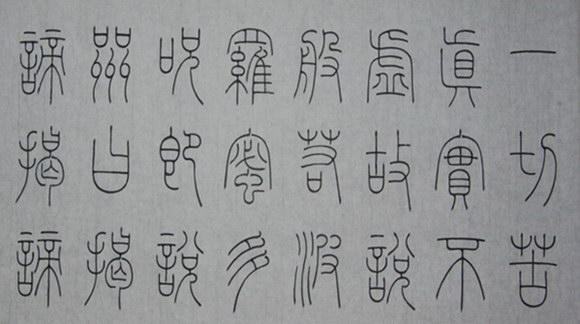 一切苦
眞實不
虛故說
般若波
羅蜜多
呪即說
咒曰揭
諦揭諦